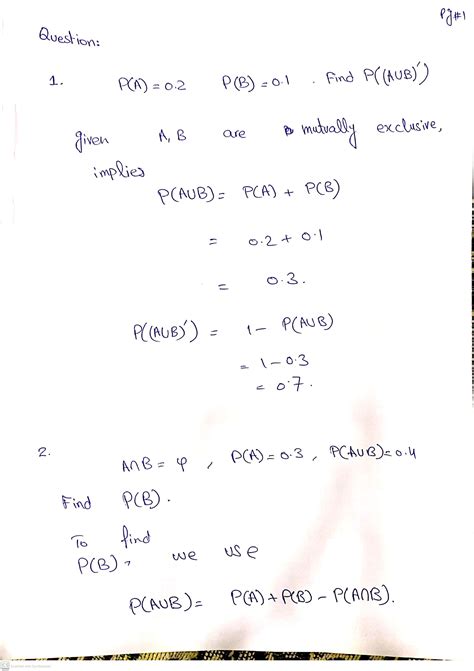 Pg#1
Question:
1. P(A) = 0.2 P(B) = 0.1 . Find P((A∪B)')
given A, B are mutually exclusive,
implies
P(A∪B) = P(A) + P(B)
= 0.2 + 0.1
= 0.3.
P((A∪B)') = 1 - P(A∪B)
= 1 - 0.3
= 0.7.
2. A∩B = φ , P(A) = 0.3 , P(A∪B) = 0.4
Find P(B).
To find
P(B), we use
P(A∪B) = P(A) + P(B) - P(A∩B).